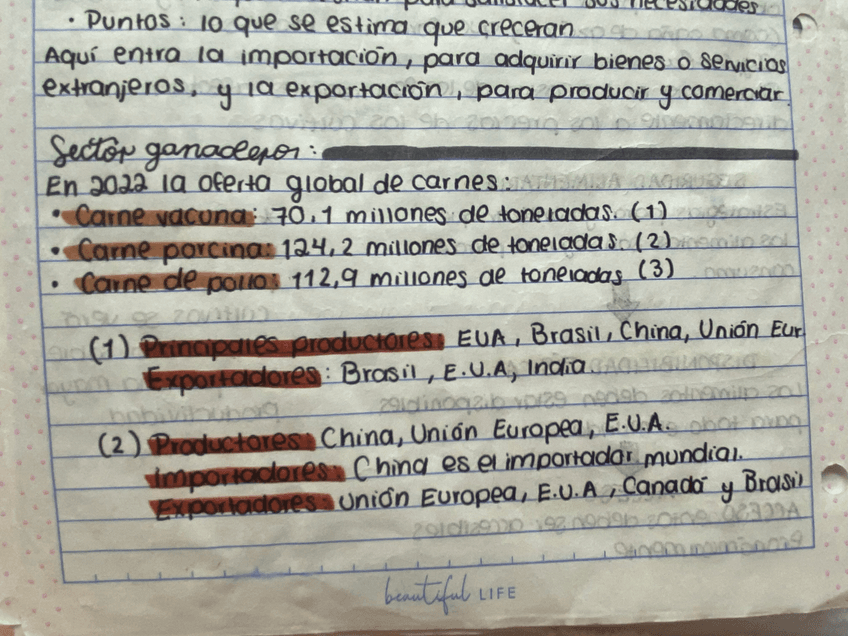 para satisfacer sus necesidades
• Puntos: lo que se estima que creceran
Aquí entra la importación, para adquirir bienes o servicios
extranjeros, y la exportación, para producir y comerciar.
Sector ganadero:
En 2022 la oferta global de carnes:
• Carne vacuna: 70,1 millones de toneladas. (1)
• Carne porcina: 124,2 millones de toneladas. (2)
• Carne de pollo: 112,9 millones de toneladas (3)
(1) Principales productores: EUA, Brasil, China, Unión Eur.
Exportadores: Brasil, E.U.A, India.
(2) Productores: China, Unión Europea, E.U.A.
Importadores: China es el importador mundial.
Exportadores: Unión Europea, E.U.A, Canadá y Brasil
beautiful LIFE